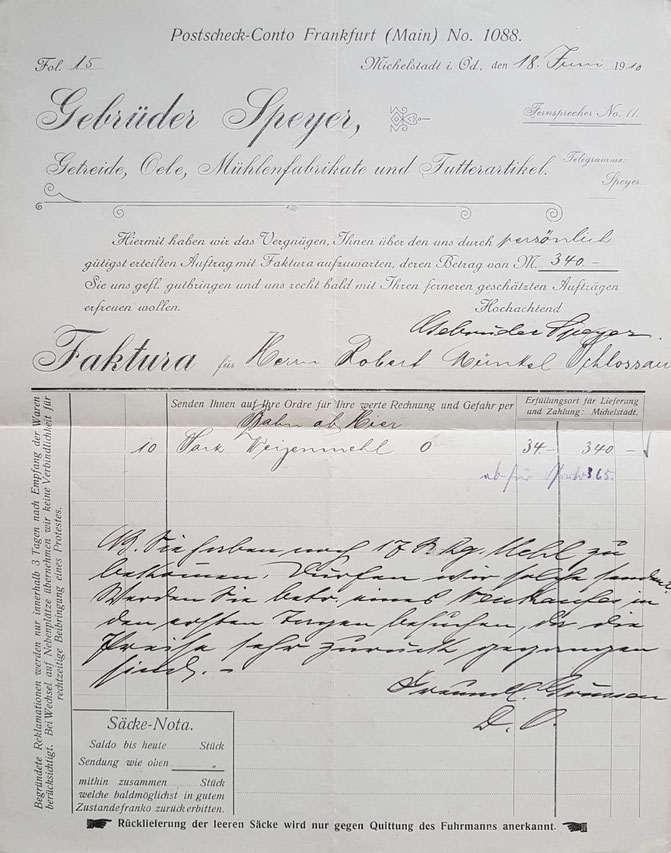 Postscheck-Conto Frankfurt (Main) No. 1088.
Fol. 15
Michelstadt i. Od., den 18. Juni 1910
Gebrüder Speyer,
Fernsprecher No. 11.
Getreide, Oele, Mühlenfabrikate und Futterartikel.
Telegramme:
Speyer.
Hiermit haben wir das Vergnügen, Ihnen über den uns durch persönlich
gütigst erteilten Auftrag mit Faktura aufzuwarten, deren Betrag von M. 340 –
Sie uns gefl. gutbringen und uns recht bald mit Ihren ferneren geschätzten Aufträgen
erfreuen wollen.
Hochachtend
Gebrüder Speyer.
Faktura für Herrn Robert Münkel Schlossau
Senden Ihnen auf Ihre Ordre für Ihre werte Rechnung und Gefahr per
Erfüllungsort für Lieferung
und Zahlung: Michelstadt.
Bahn ab Hier
10 Sack Weizenmehl 0 34 – 340 –
ab für 3 65
NB. Sie haben noch 17 Kg. Mehl zu
bekommen. Dürfen wir solche senden?
Werden Sie betr. eines Verkaufes in
den ersten Tagen besuchen, da die
Preise sehr zurück gegangen
sind. –
Freundl. Grüssen
D. O.
Begründete Reklamationen werden nur innerhalb 3 Tagen nach Empfang der Waren
berücksichtigt. Bei Wechsel auf Nebenplätze übernehmen wir keine Verbindlichkeit für
rechtzeitige Beibringung eines Protestes.
Säcke-Nota.
Saldo bis heute Stück
Sendung wie oben "
mithin zusammen Stück
welche baldmöglichst in gutem
Zustande franko zurückerbitten.
Rücklieferung der leeren Säcke wird nur gegen Quittung des Fuhrmanns anerkannt.